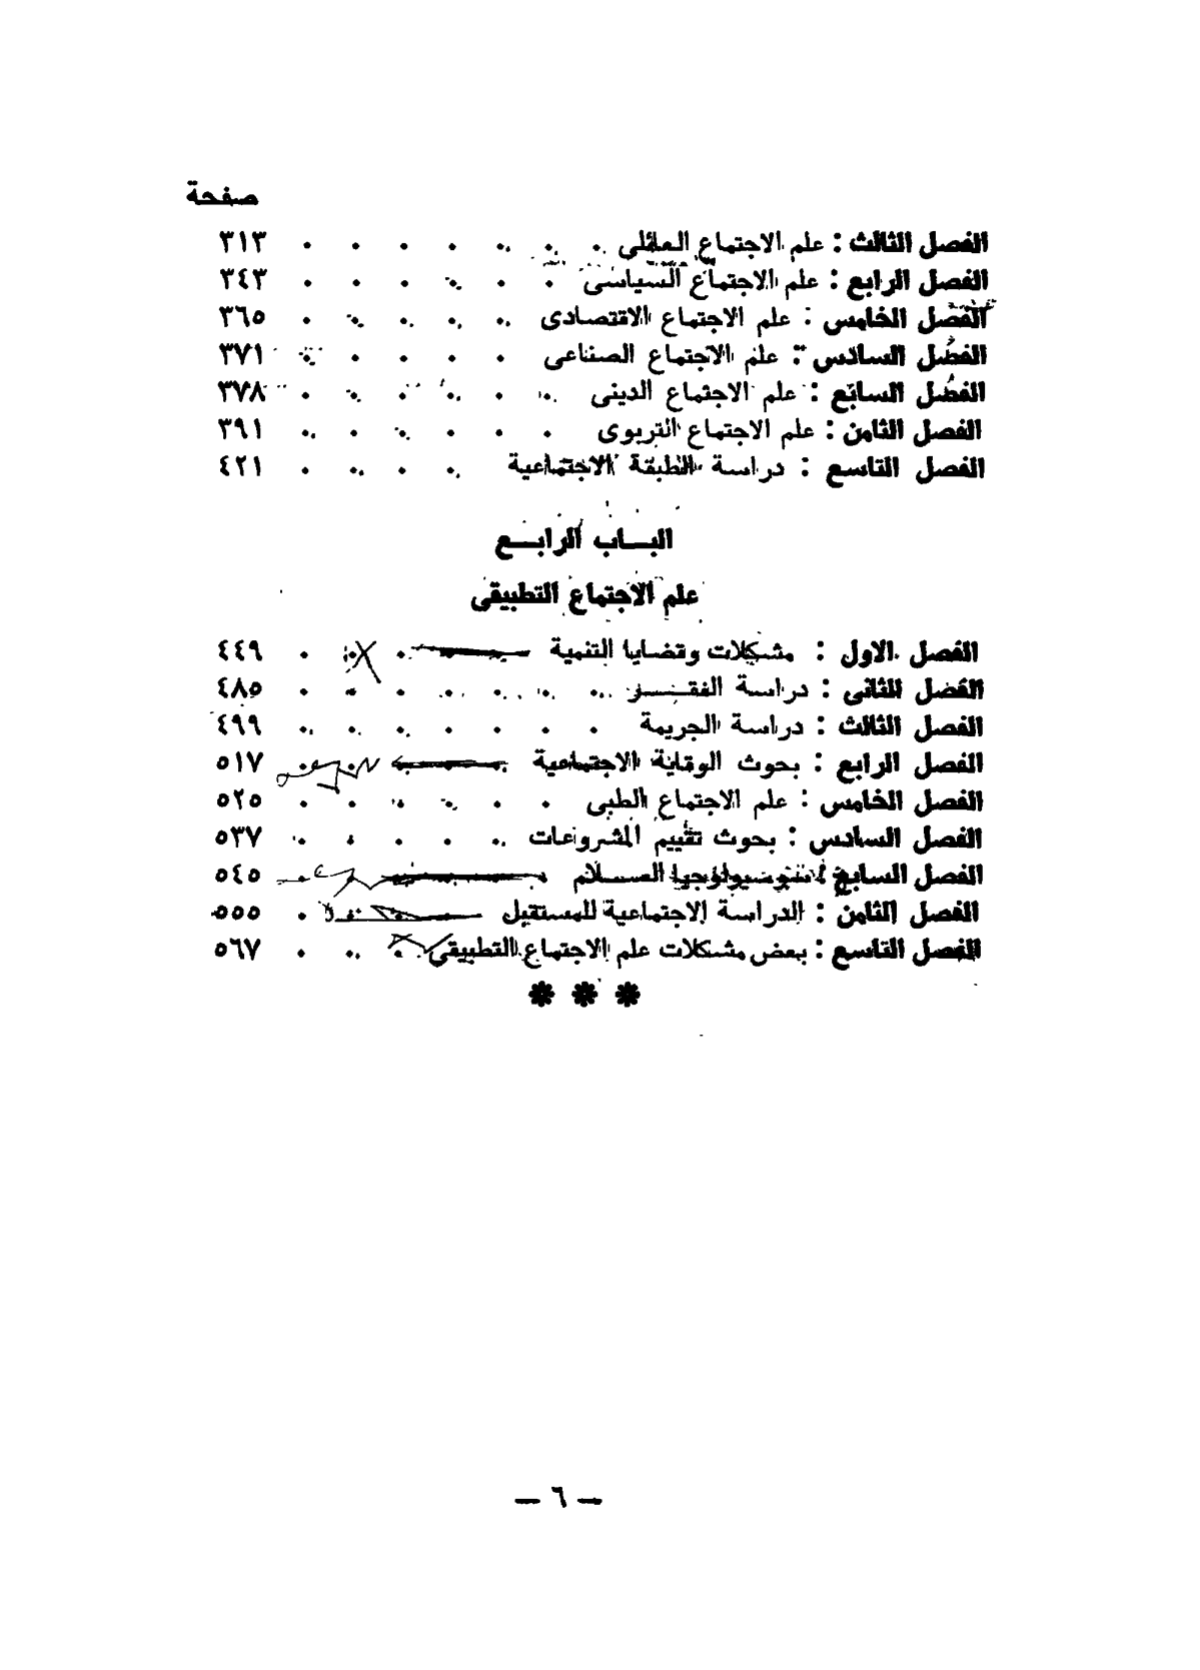 صفحة
الفصل الثالث : علم الاجتماع العائلى . . . . . . . ٣١٣
الفصل الرابع : علم الاجتماع السياسى . . . . . . ٣٤٣
الفصل الخامس : علم الاجتماع الاقتصادى . . . . . ٣٦٥
الفصل السادس : علم الاجتماع الصناعى . . . . . ٣٧١
الفصل السابع : علم الاجتماع الدينى . . . . . . ٣٧٨
الفصل الثامن : علم الاجتماع التربوى . . . . . . ٣٩١
الفصل التاسع : دراسة الطبقة الاجتماعية . . . . ٤٢١
البـاب الرابـع
علم الاجتماع التطبيقى
الفصل الاول : مشكلات وقضايا التنمية . . . ٤٤٩
الفصل الثانى : دراسة الفقـر . . . . . . . ٤٨٥
الفصل الثالث : دراسة الجريمة . . . . . . . ٤٩٩
الفصل الرابع : بحوث الوقاية الاجتماعية . . . ٥١٧
الفصل الخامس : علم الاجتماع الطبى . . . . . . ٥٢٥
الفصل السادس : بحوث تقييم المشروعات . . . . . ٥٣٧
الفصل السابع : سوسيولوجيا السـلام . . . ٥٤٥
الفصل الثامن : الدراسة الاجتماعية للمستقبل . ٥٥٥
الفصل التاسع : بعض مشكلات علم الاجتماع التطبيقى . . . ٥٦٧
* * *
— ٦ —